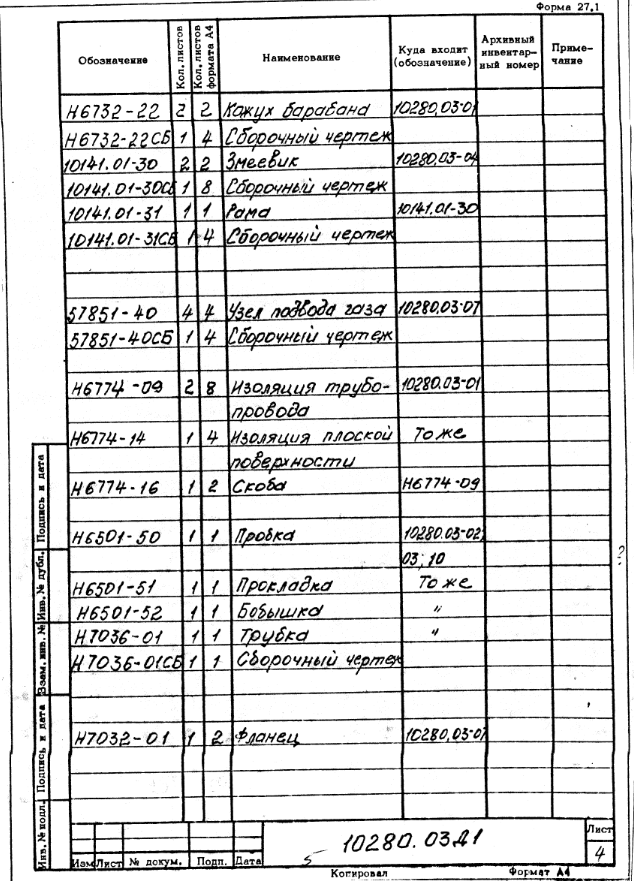 Форма 27.1
Обозначение Кол. листов Кол. листов формата А4 Наименование Куда входит (обозначение) Архивный инвентарный номер Примечание
Н6732-22 2 2 Кожух барабана 10280.03-01
Н6732-22СБ 1 4 Сборочный чертеж
10141.01-30 2 2 Змеевик 10280.03-04
10141.01-30СБ 1 8 Сборочный чертеж
10141.01-31 1 1 Рама 10141.01-30
10141.01-31СБ 1 4 Сборочный чертеж
57851-40 4 4 Узел подвода газа 10280.03-07
57851-40СБ 1 4 Сборочный чертеж
Н6774-09 2 8 Изоляция трубо- 10280.03-01
провода
Н6774-14 1 4 Изоляция плоской То же
поверхности
Н6774-16 1 2 Скоба Н6774-09
Н6501-50 1 1 Пробка 10280.03-02;
03; 10
Н6501-51 1 1 Прокладка То же
Н6501-52 1 1 Бобышка "
Н7036-01 1 1 Трубка "
Н7036-01СБ 1 1 Сборочный чертеж
Н7032-01 1 2 Фланец 10280.03-07
Инв. № подл. Подпись и дата Взам. инв. № Инв. № дубл. Подпись и дата
10280.03Д1
Лист
4
Изм Лист № докум. Подп. Дата
5
Копировал Формат А4